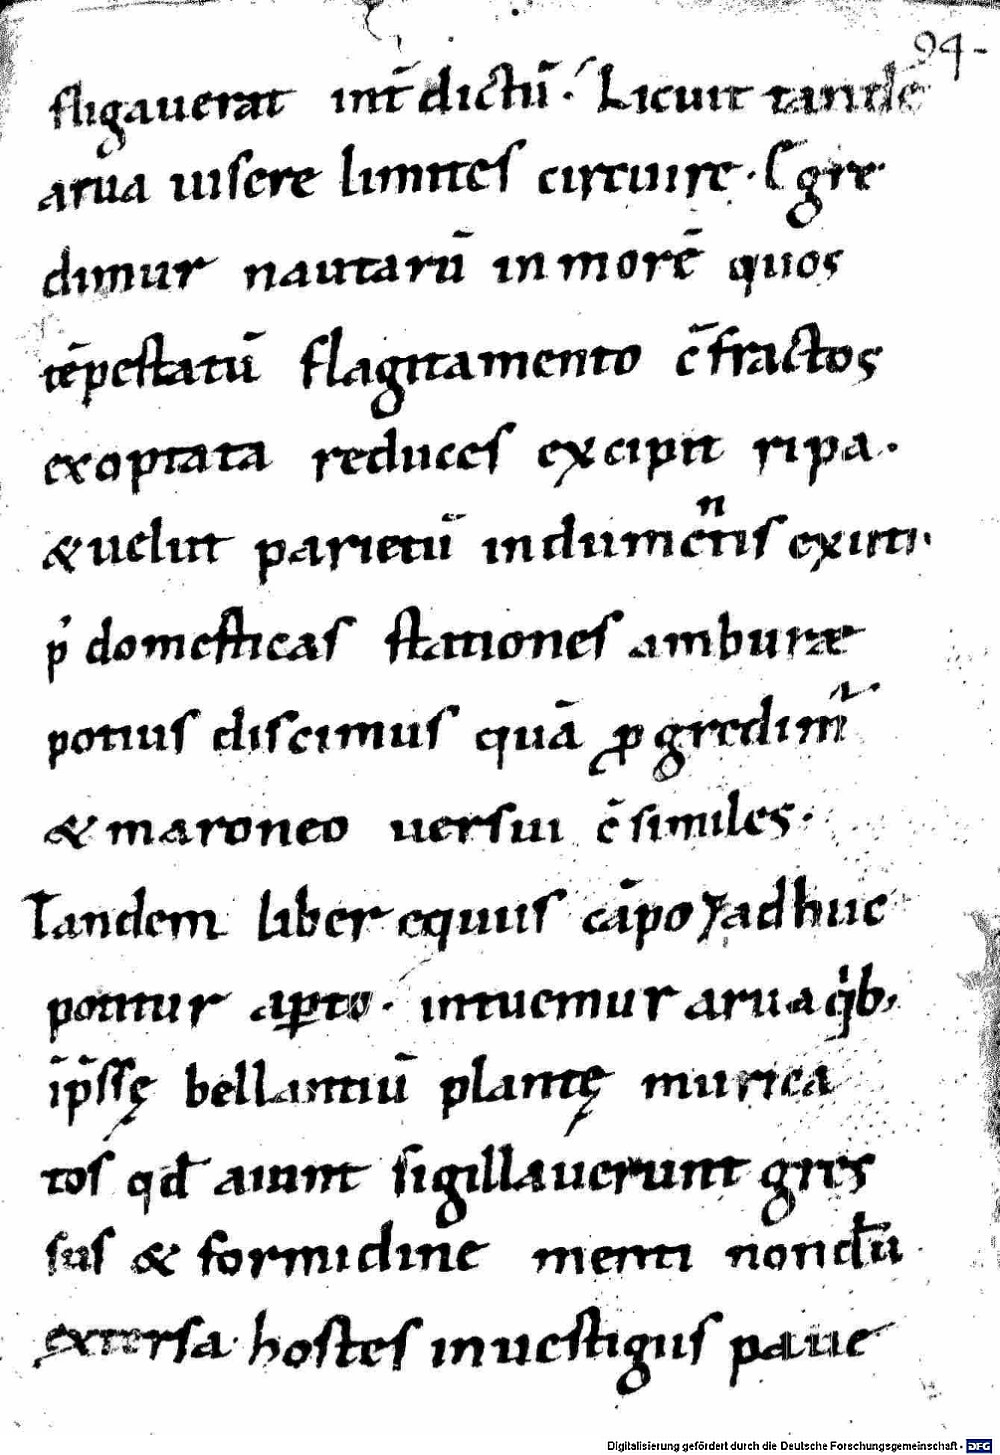 94
fligauerat int̄dictū. Licuit tandē
arua uisere limites circuire. Egre
dimur nautarū in morē quos
tēpestatū flagitamento c̄fractos
exoptata reduces excipit ripa.
& uelut parietū indumentis exuti.
p̄ domesticas stationes amburæ
potius discimus quā ꝓgredim̃.
& maroneo uersui c̄similes.
Tandem liber equus cāpo ⁊ adhuc
potitur aꝑto. intuemur arua qͥb;
īp̄ssę bellantiū plantę murica
tos qđ aiunt sigillauerunt gres
sus & formidine menti nondū
extersa. hostes inuestigus paue
Digitalisierung gefördert durch die Deutsche Forschungsgemeinschaft - DFG